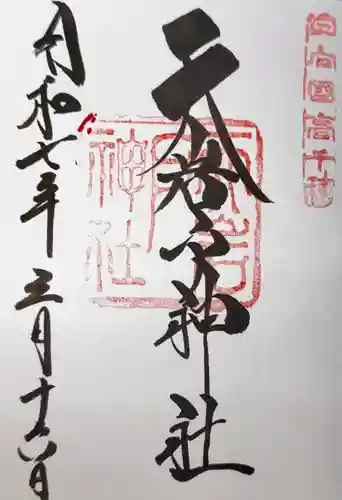 日向國高千穂
天岩戸神社
天岩戸神社
令和七年三月十六日